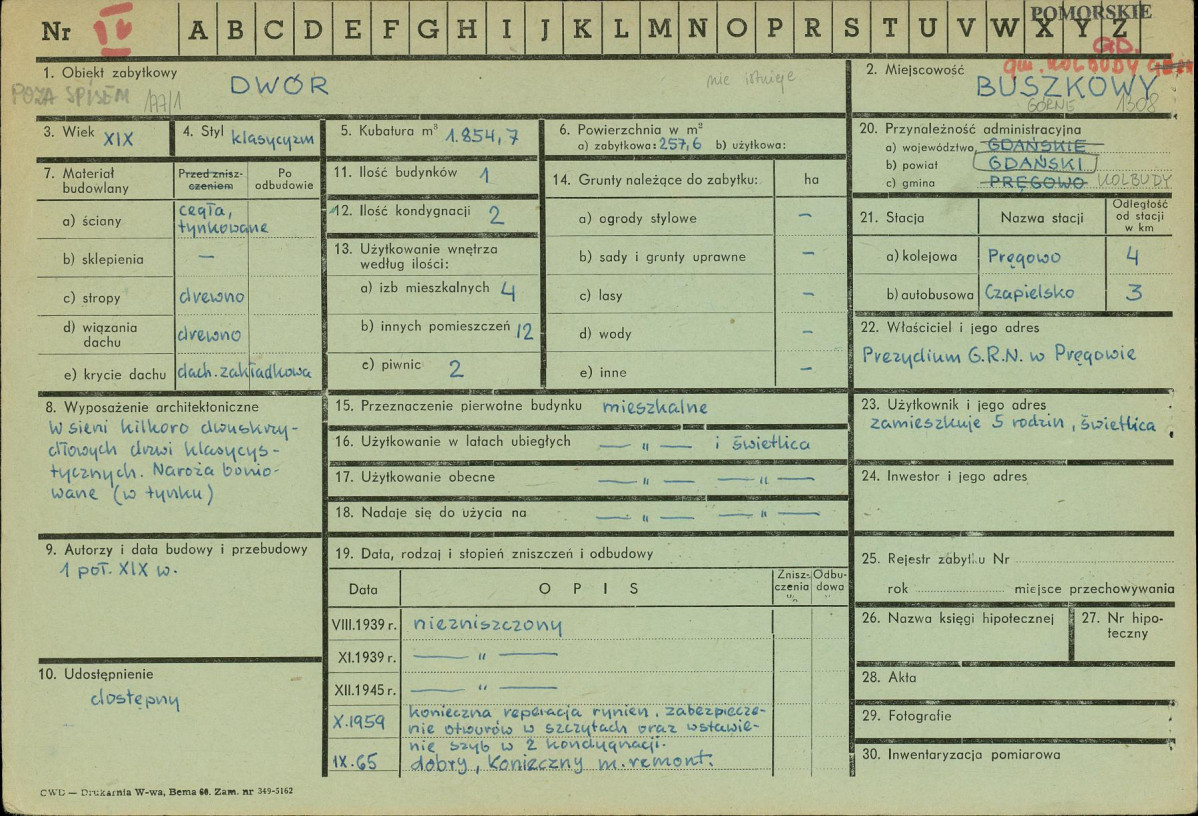 Nr IV A B C D E F G H I J K L M N O P R S T U V W X Y Z
POMORSKIE
GD.
gm. KOLBUDY
1. Obiekt zabytkowy
DWÓR
nie istnieje
POZA SPISEM 177/1
2. Miejscowość
BUSZKOWY
GÓRNE 1308
3. Wiek XIX
4. Styl klasycyzm
5. Kubatura m³ 1.854,7
6. Powierzchnia w m²
a) zabytkowa: 257,6 b) użytkowa:
7. Materiał budowlany
Przed znisz-
czeniem
Po
odbudowie
a) ściany cegła,
tynkowane
b) sklepienia —
c) stropy drewno
d) wiązania
dachu drewno
e) krycie dachu dach. zakładkowa
8. Wyposażenie architektoniczne
W sieni kilkoro dwuskrzy-
dłowych drzwi klasycys-
tycznych. Naroża bonio-
wane (w tynku)
9. Autorzy i data budowy i przebudowy
1 poł. XIX w.
10. Udostępnienie
dostępny
11. Ilość budynków 1
12. Ilość kondygnacji 2
13. Użytkowanie wnętrza
według ilości:
a) izb mieszkalnych 4
b) innych pomieszczeń 12
c) piwnic 2
14. Grunty należące do zabytku: ha
a) ogrody stylowe –
b) sady i grunty uprawne –
c) lasy –
d) wody –
e) inne –
15. Przeznaczenie pierwotne budynku mieszkalne
16. Użytkowanie w latach ubiegłych — " — i świetlica
17. Użytkowanie obecne — " — — " —
18. Nadaje się do użycia na — " — — " —
19. Data, rodzaj i stopień zniszczeń i odbudowy
Data OPIS Znisz-
czenia
%
Odbu-
dowa
"
VIII.1939 r. niezniszczony
XI.1939 r. — " —
XII.1945 r. — " —
X.1959 konieczna reperacja rynien, zabezpiecze-
nie otworów w szczytach oraz wstawie-
nie szyb w 2 kondygnacji.
IX.65 dobry, konieczny m. remont.
20. Przynależność administracyjna
a) województwo GDAŃSKIE
b) powiat GDAŃSKI
c) gmina PRĘGOWO KOLBUDY
21. Stacja Nazwa stacji Odległość
od stacji
w km
a) kolejowa Pręgowo 4
b) autobusowa Czapielsko 3
22. Właściciel i jego adres
Prezydium G.R.N. w Pręgowie
23. Użytkownik i jego adres
zamieszkuje 5 rodzin, świetlica
24. Inwestor i jego adres
25. Rejestr zabytku Nr
rok miejsce przechowywania
26. Nazwa księgi hipotecznej
27. Nr hipo-
teczny
28. Akta
29. Fotografie
30. Inwentaryzacja pomiarowa
CWD — Drukarnia W-wa, Bema 60. Zam. nr 349-5162